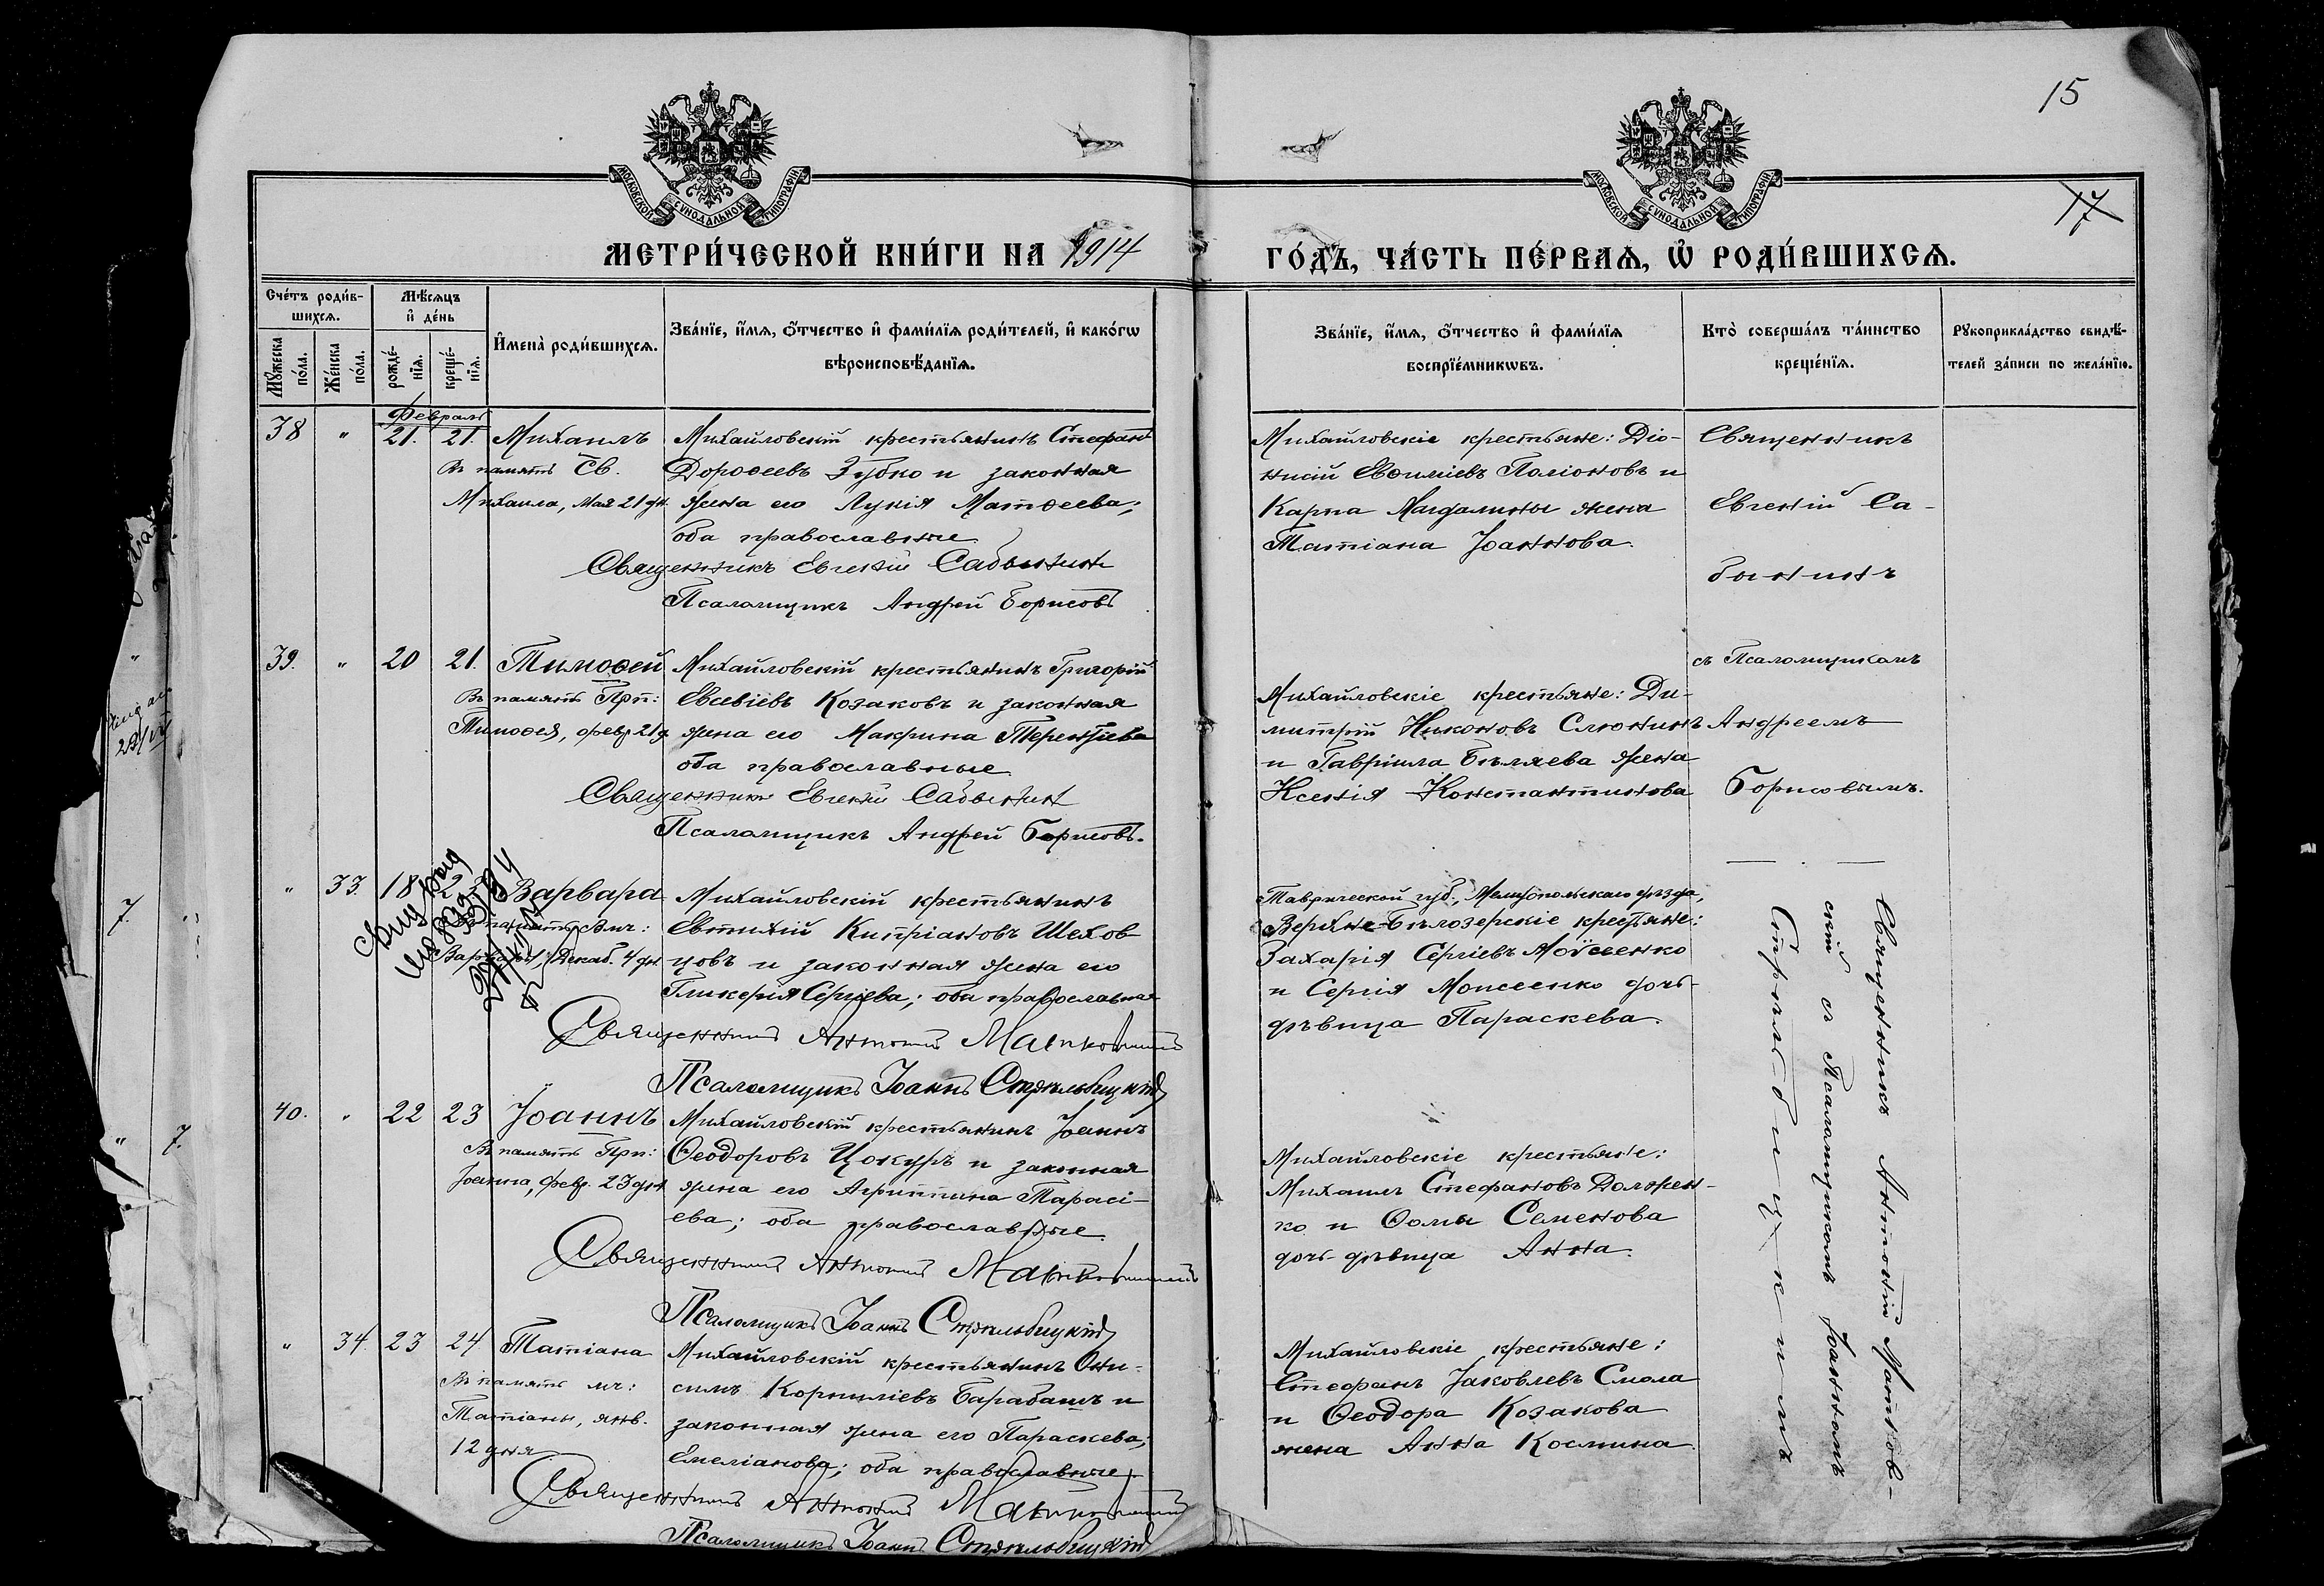 15
17
МОСКОВСКОЙ СѴНОДАЛЬНОЙ ТИПОГРАФІИ
МОСКОВСКОЙ СѴНОДАЛЬНОЙ ТИПОГРАФІИ
МЕТРИ́ЧЕСКОЙ КНИ́ГИ НА 1914
ГО́ДЪ, ЧА́СТЬ ПЕ́РВАѦ, Ѽ РОДИ́ВШИХСѦ.
Сче́тъ роди́в-
шихсѧ.
Мꙋ́жеска
по́ла.
Же́нска
по́ла.
Мѣ́сѧцъ
и҆ де́нь
рожде́-
нїѧ.
креще́-
нїѧ.
И҆мена̀ роди́вшихсѧ.
Зва́нїе, и҆́мѧ, ѻ҆́тчество и҆ фами́лїѧ роди́телей, и҆ како́гѡ
вѣроисповѣ́данїѧ.
Зва́нїе, и҆́мѧ, ѻ҆́тчество и҆ фами́лїѧ
воспрїе́мникѡвъ.
Кто̀ соверша́лъ та́инство
креще́нїѧ.
Рꙋкоприкла́дство свидѣ́-
телей за́писи по жела́нїю.
Февраль
38 " 21. 21. Михаилъ
Въ память Св.
Михаила, Мая 21 дн.
Михайловскій крестьянинъ Стефанъ
Дороѳеевъ Зубко и законная
жена его Лукія Матѳеева;
оба православные.
Священникъ Евгеній Сабынинъ
Псаломщикъ Андрей Борисовъ
Михайловскіе крестьяне: Діо-
нисій Евѳиміевъ Поліоновъ и
Карпа Магдалины жена
Татіана Іоаннова.
Священникъ
Евгеній Са-
бынинъ
съ Псаломщикомъ
Андреемъ
Борисовымъ.
39. " 20 21. Тимоѳей
Въ память Прп:
Тимоѳея, февр. 21 д.
Михайловскій крестьянинъ Григорій
Евсевіевъ Козаковъ и законная
жена его Макрина Терентіева
оба православные.
Священникъ Евгеній Сабынинъ
Псаломщикъ Андрей Борисовъ.
Михайловскіе крестьяне: Ди-
митрій Никоновъ Слюнинъ
и Гавріила Бѣляева жена
Ксенія Константинова
" 33. 18 23 Варвара
Въ память Вмч:
Варвары, Декаб. 4 дн.
Михайловскій крестьянинъ
Евтихій Кипріановъ Шехов
цовъ и законная жена его
Гликерія Сергіева; оба православные
Священникъ Антоній Маньковскій
Псаломщикъ Іоаннъ Стрѣльбицкій
Таврической губ., Мелитопольскаго уѣзда,
Верхне-Бѣлозерскіе крестьяне:
Захарія Сергіевъ Моисеенко
и Сергія Моисеенко дочь-
дѣвица Параскева.
Священникъ Антоній Маньков-
скій съ Псаломщикомъ Іоанномъ
Стрѣльбицкимъ
40. " 22 23 Іоаннъ
Въ память Прп:
Іоанна, февр. 23 дня
Михайловскій крестьянинъ Іоаннъ
Ѳеодоровъ Цокуръ и законная
жена его Агриппина Тарасі-
ева; оба православные.
Священникъ Антоній Маньковскій
Псаломщикъ Іоаннъ Стрѣльбицкій
Михайловскіе крестьяне:
Михаилъ Стефановъ Должен-
ко и Ѳомы Семенова
дочь-дѣвица Анна.
" 34. 23 24 Татіана
Въ память мч:
Татіаны, янв.
12 дня
Михайловскій крестьянинъ Они-
симъ Корниліевъ Барабашъ и
законная жена его Параскева
Емеліанова; оба православные.
Священникъ Антоній Маньковскій
Псаломщикъ Іоаннъ Стрѣльбицкій
Михайловскіе крестьяне:
Стефанъ Іаковлевъ Смола
и Ѳеодора Козакова
жена Анна Космина.